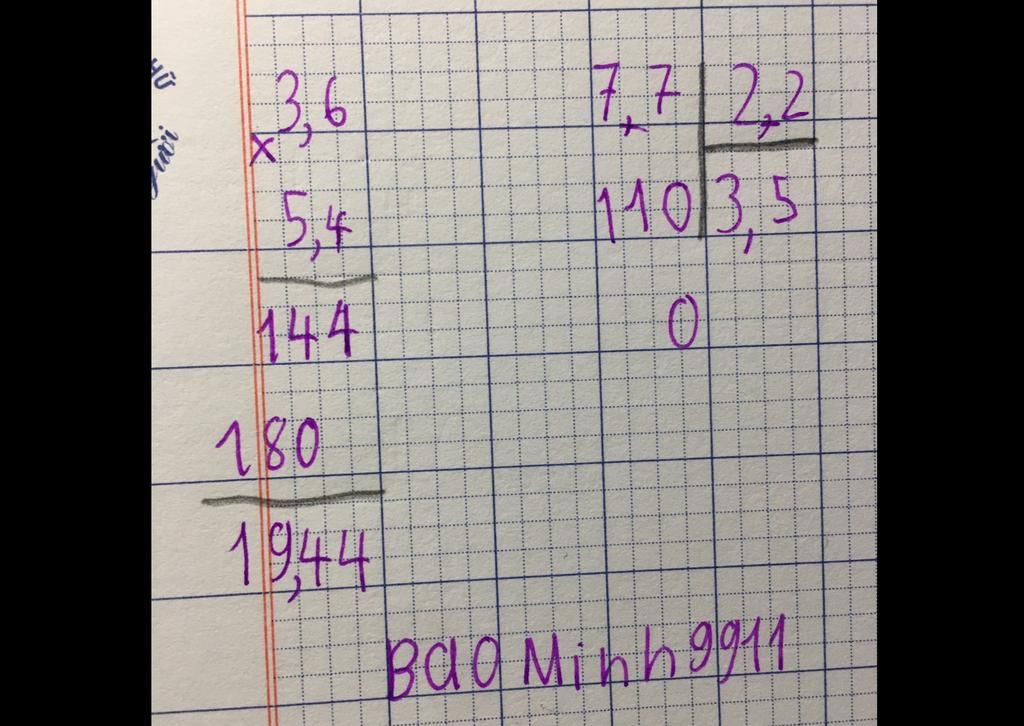 3,6
x
5,4
144
180
19,44
7,7 2,2
110 3,5
0
BaO Minh9911